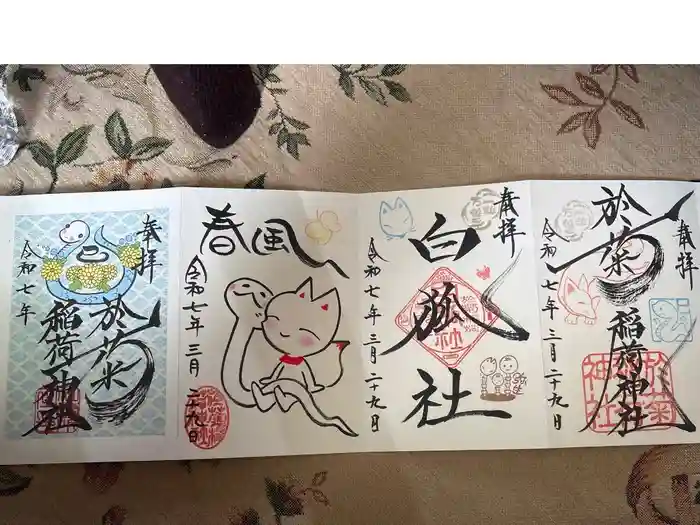 奉拝
於菊
稲荷神社
巳
令和七年
春風
令和七年三月二九日
奉拝
白狐社
令和七年三月二十九日
奉拝
於菊
稲荷神社
令和七年三月二十九日